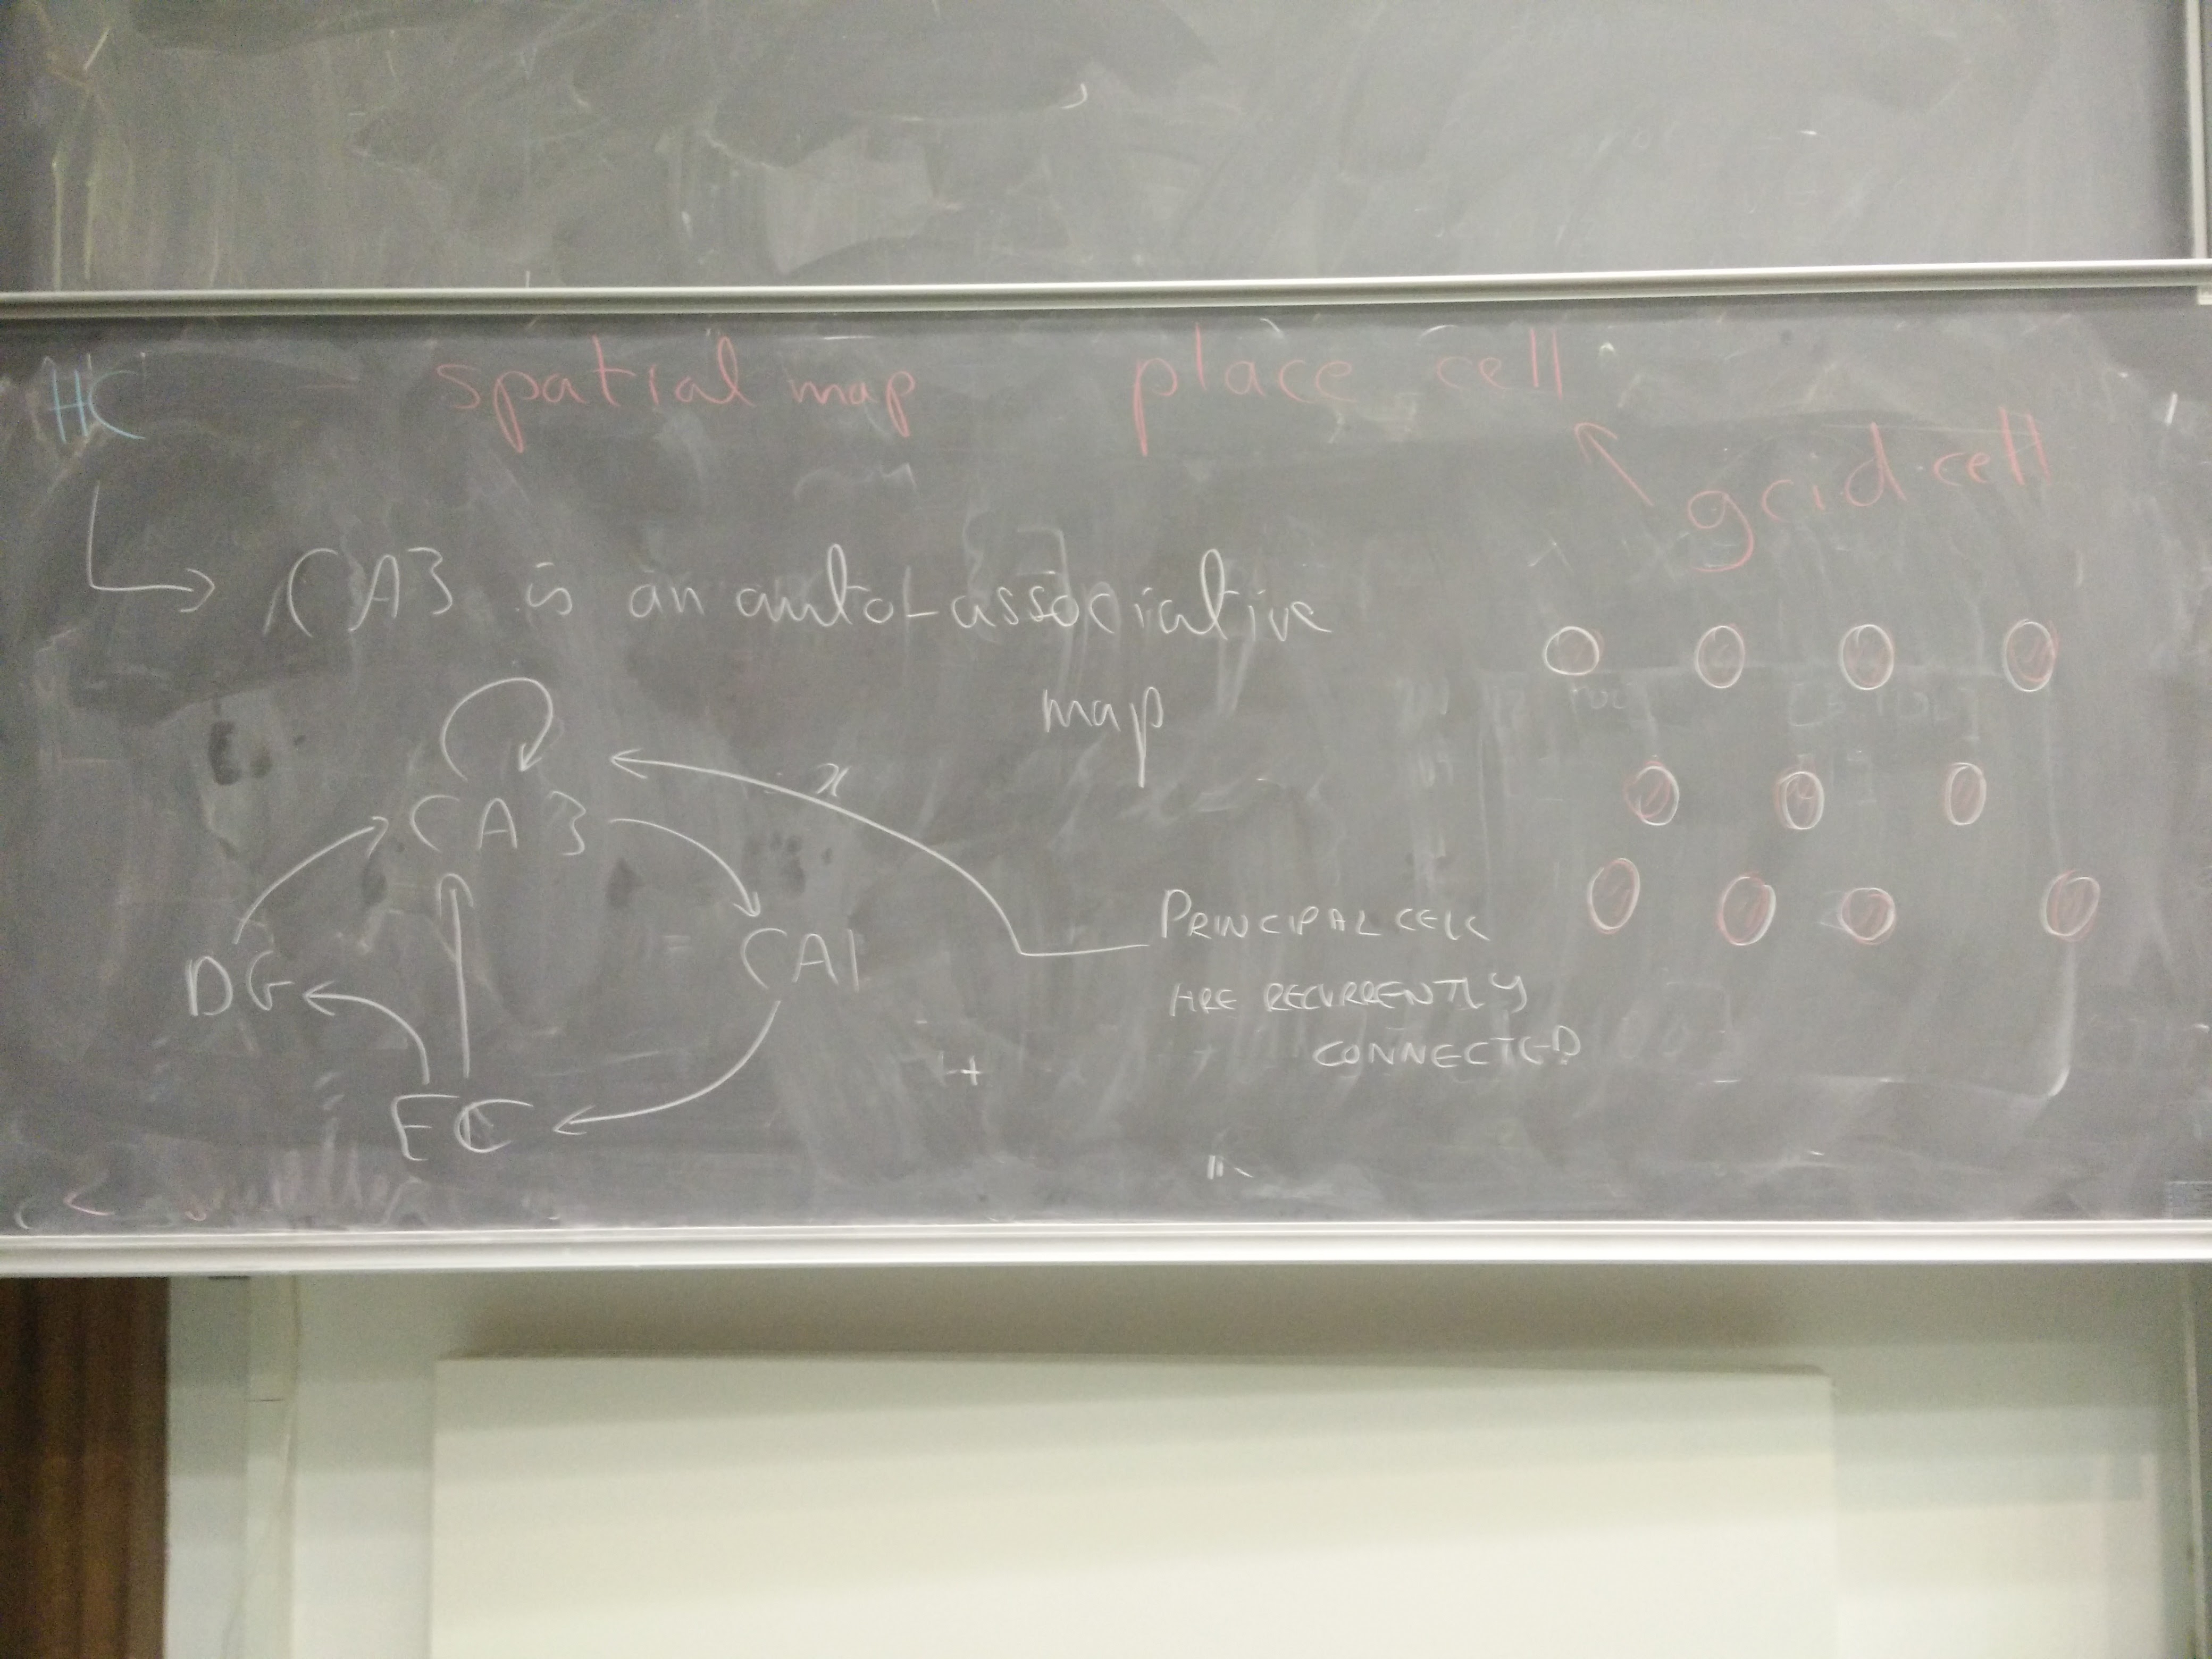 HC - spatial map place cell
grid cell
CA3 is an auto-associative
map
CA3
PRINCIPAL CELLS
ARE RECURRENTLY
CONNECTED
CA1
DG
EC